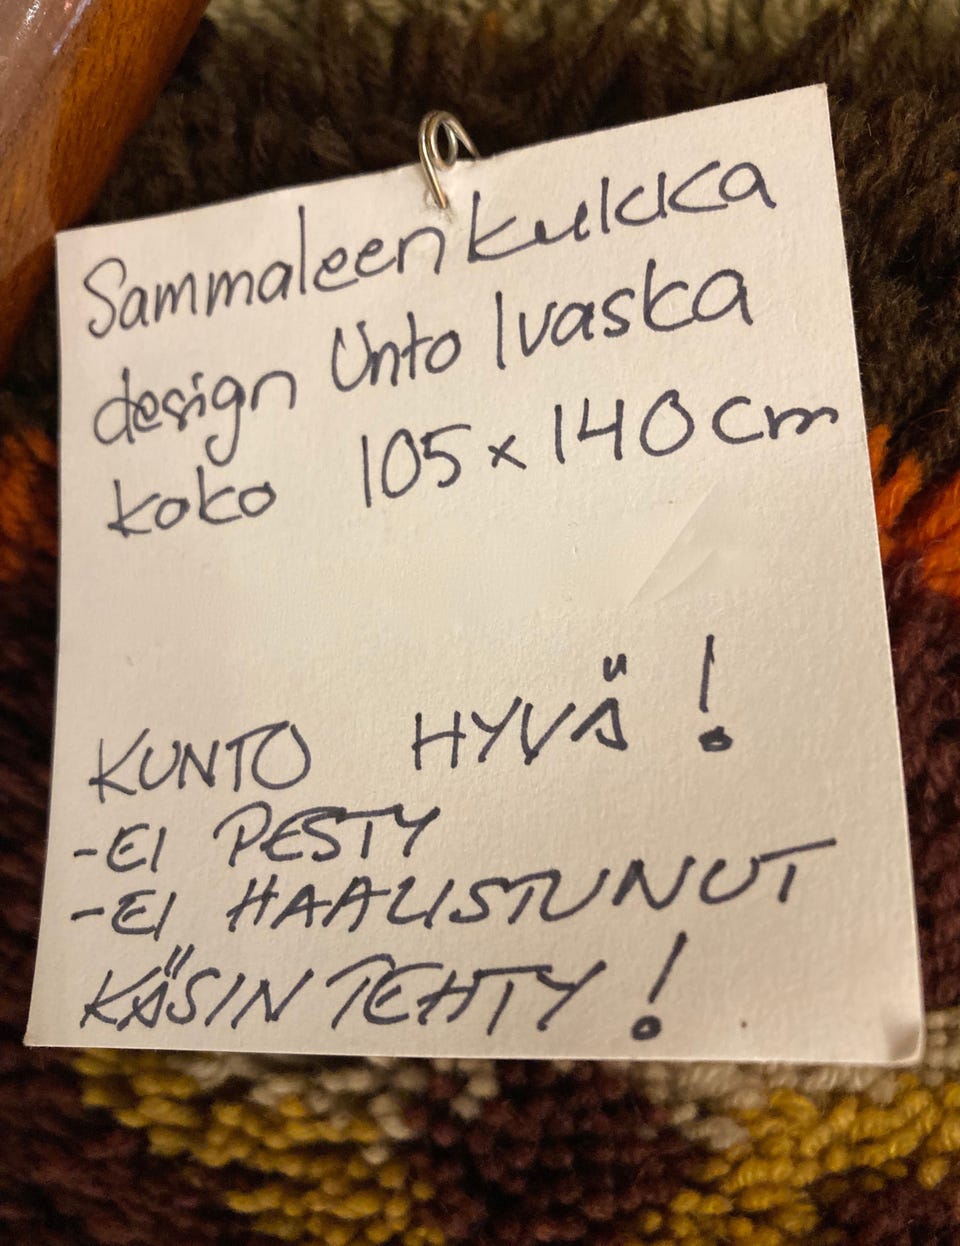 Sammaleenkukka
design Unto Ivaska
koko 105 x 140 cm
KUNTO HYVÄ !
-EI PESTY
-EI HAALISTUNUT
KÄSIN TEHTY !